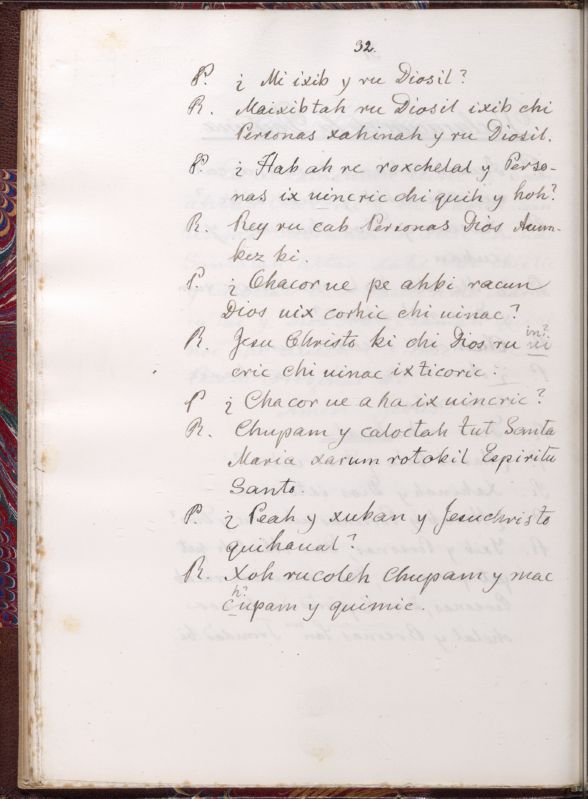 32.
P. ¿ Mi ixib y ru Diosil?
R. Maixibtah ru Diosil ixib chi
Personas xahinah y ru Diosil.
P. ¿ Hab ah re roxchelal y Perso-
nas ix uincric chi quih y hoh?
R. Rey ru cab Personas Dios Acun-
kez ki.
P. ¿ Chacor ue pe ahbi racun
Dios uix corhic chi uinac?
R. Jesu Christo ki chi Dios ru ui
in?
cric chi uinac ixticoric.
P ¿ Chacor ue aha ix uincric?
R. Chupam y caloctah tut Santa
Maria xarum rotokil Espiritu
Santo.
P. ¿ Peah y xukan y Jesuchristo
quihaual?
R. Xoh rucoleh Chupam y mac
h?
cupam y quimic.